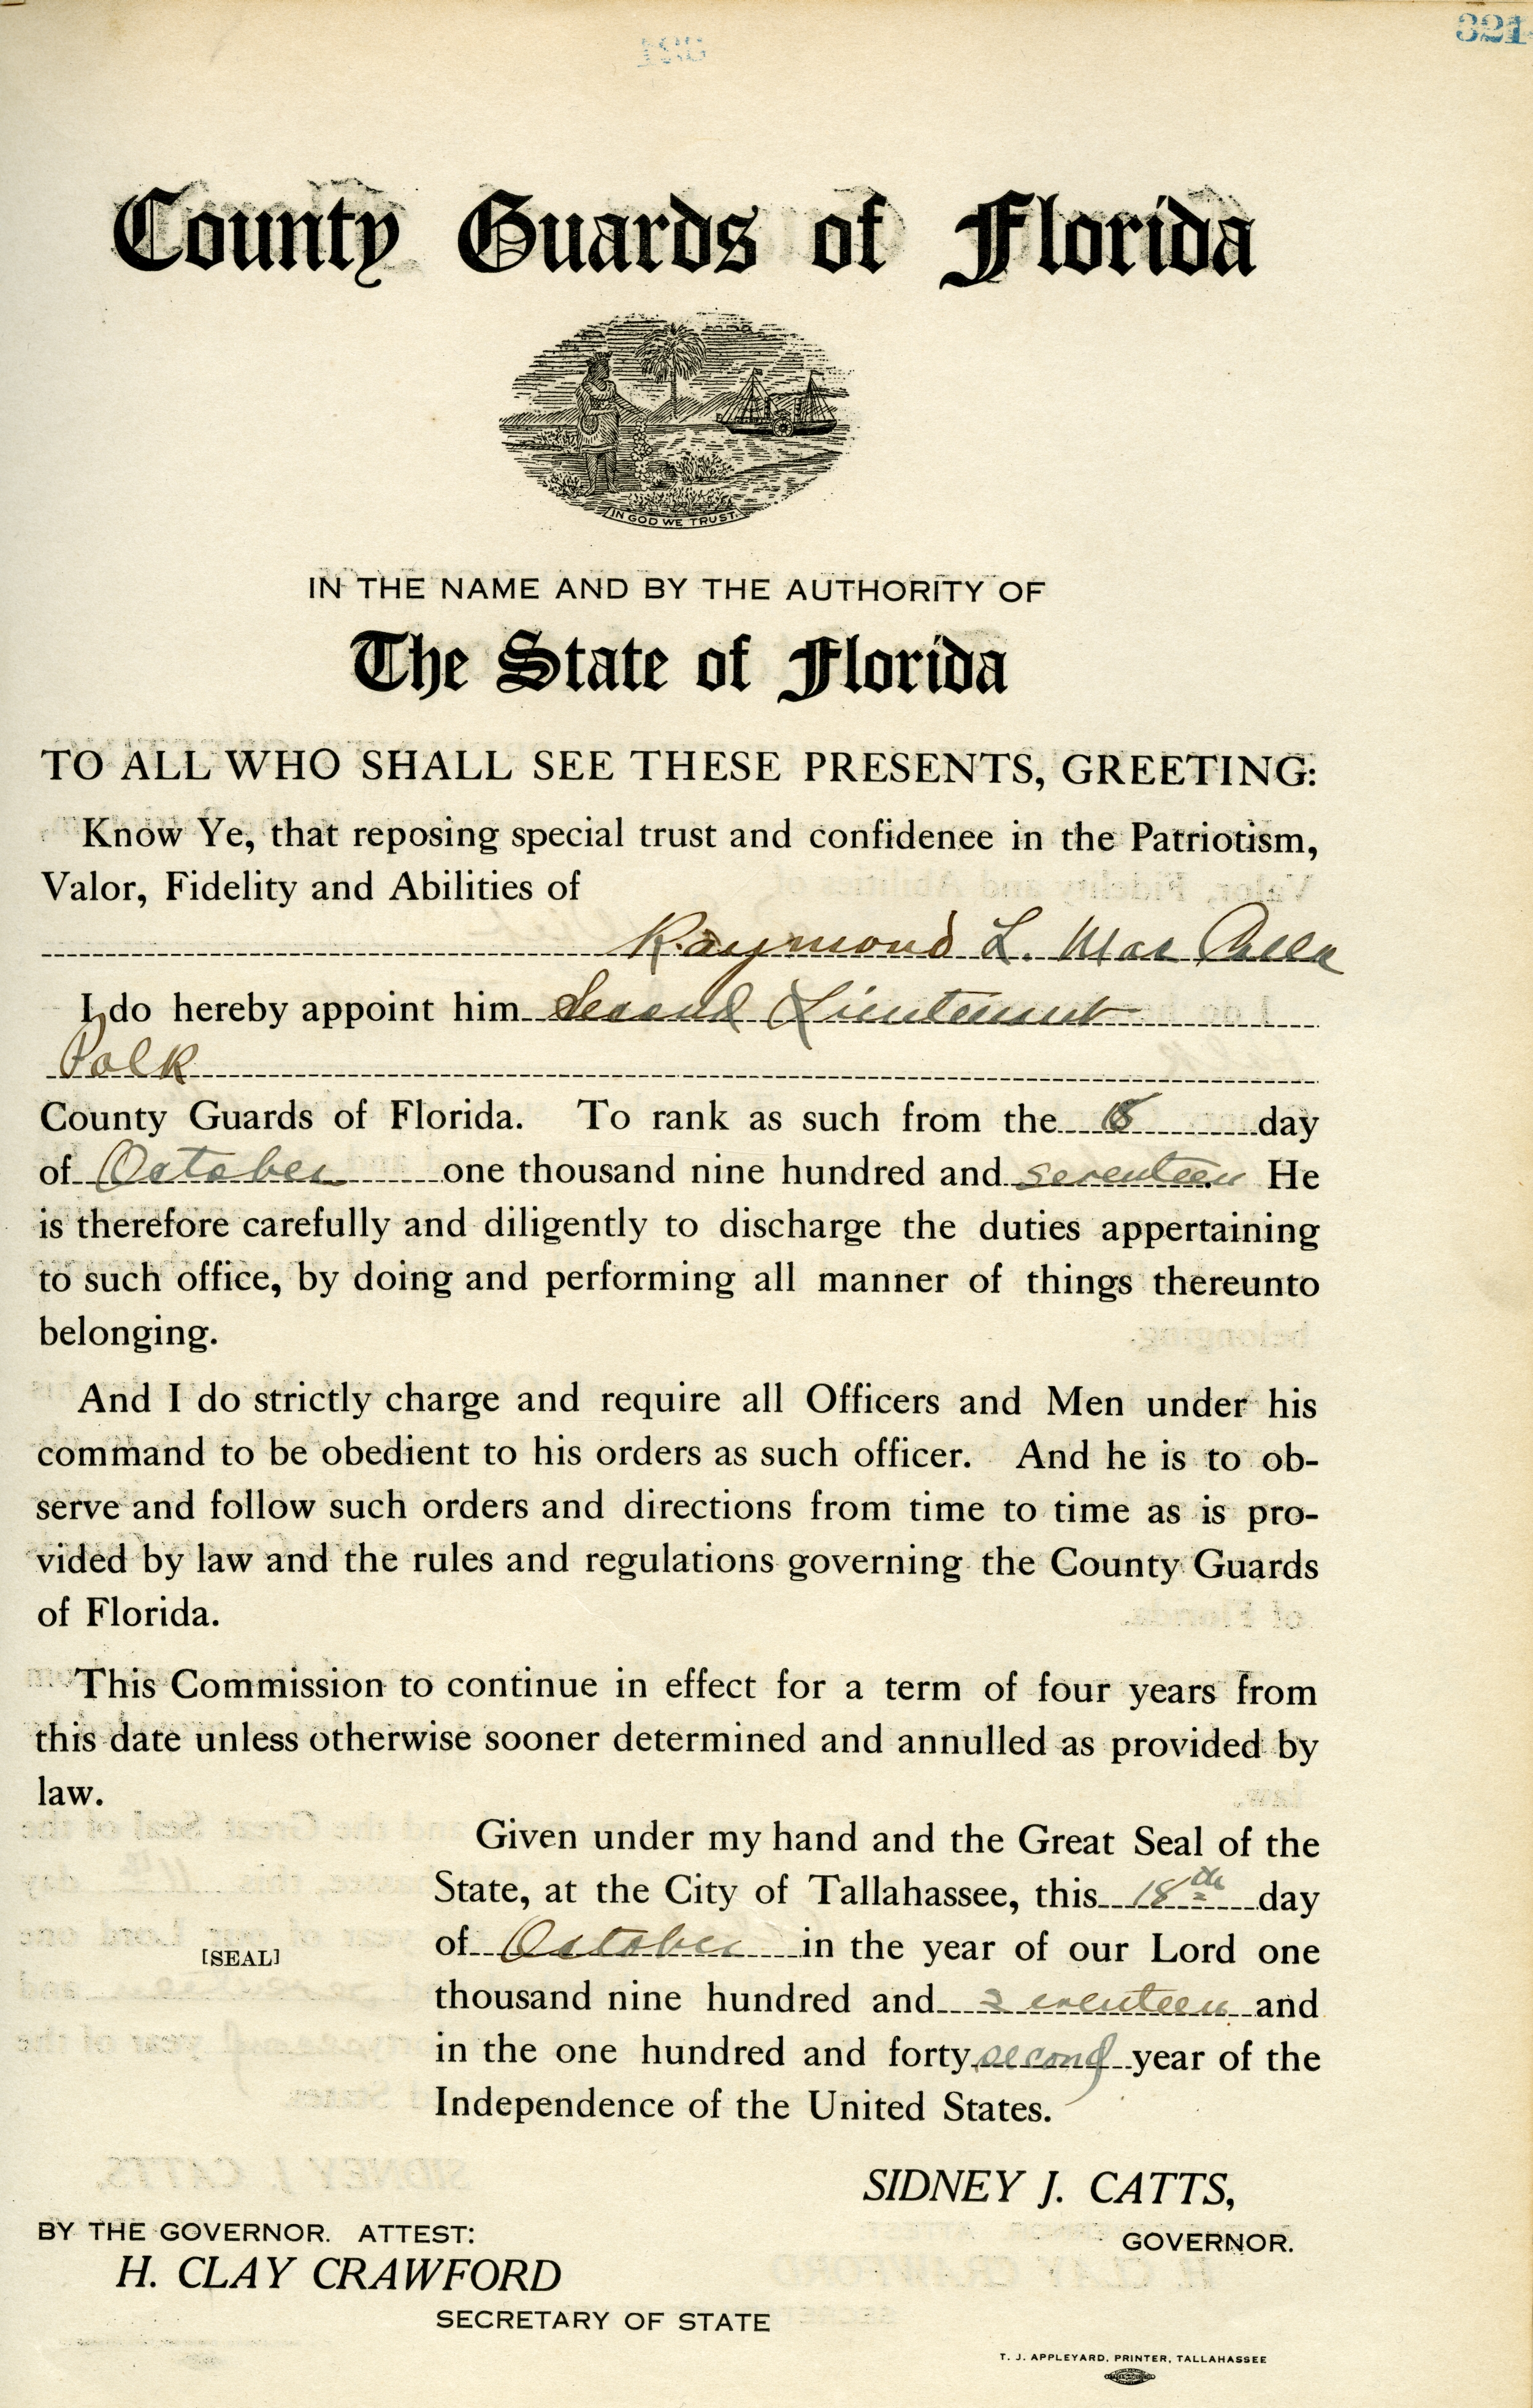 321
County Guards of Florida
IN GOD WE TRUST.
IN THE NAME AND BY THE AUTHORITY OF
The State of Florida
TO ALL WHO SHALL SEE THESE PRESENTS, GREETING:
Know Ye, that reposing special trust and confidenee in the Patriotism,
Valor, Fidelity and Abilities of
Raymond L. Mac
I do hereby appoint him Second Lieutenant
Polk
County Guards of Florida. To rank as such from the day
of October one thousand nine hundred and seventeen He
is therefore carefully and diligently to discharge the duties appertaining
to such office, by doing and performing all manner of things thereunto
belonging.
And I do strictly charge and require all Officers and Men under his
command to be obedient to his orders as such officer. And he is to ob-
serve and follow such orders and directions from time to time as is pro-
vided by law and the rules and regulations governing the County Guards
of Florida.
This Commission to continue in effect for a term of four years from
this date unless otherwise sooner determined and annulled as provided by
law.
Given under my hand and the Great Seal of the
State, at the City of Tallahassee, this 18th day
of October in the year of our Lord one
[SEAL]
thousand nine hundred and seventeen and
in the one hundred and forty second year of the
Independence of the United States.
SIDNEY J. CATTS,
GOVERNOR.
BY THE GOVERNOR. ATTEST:
H. CLAY CRAWFORD
SECRETARY OF STATE
T. J. APPLEYARD, PRINTER, TALLAHASSEE